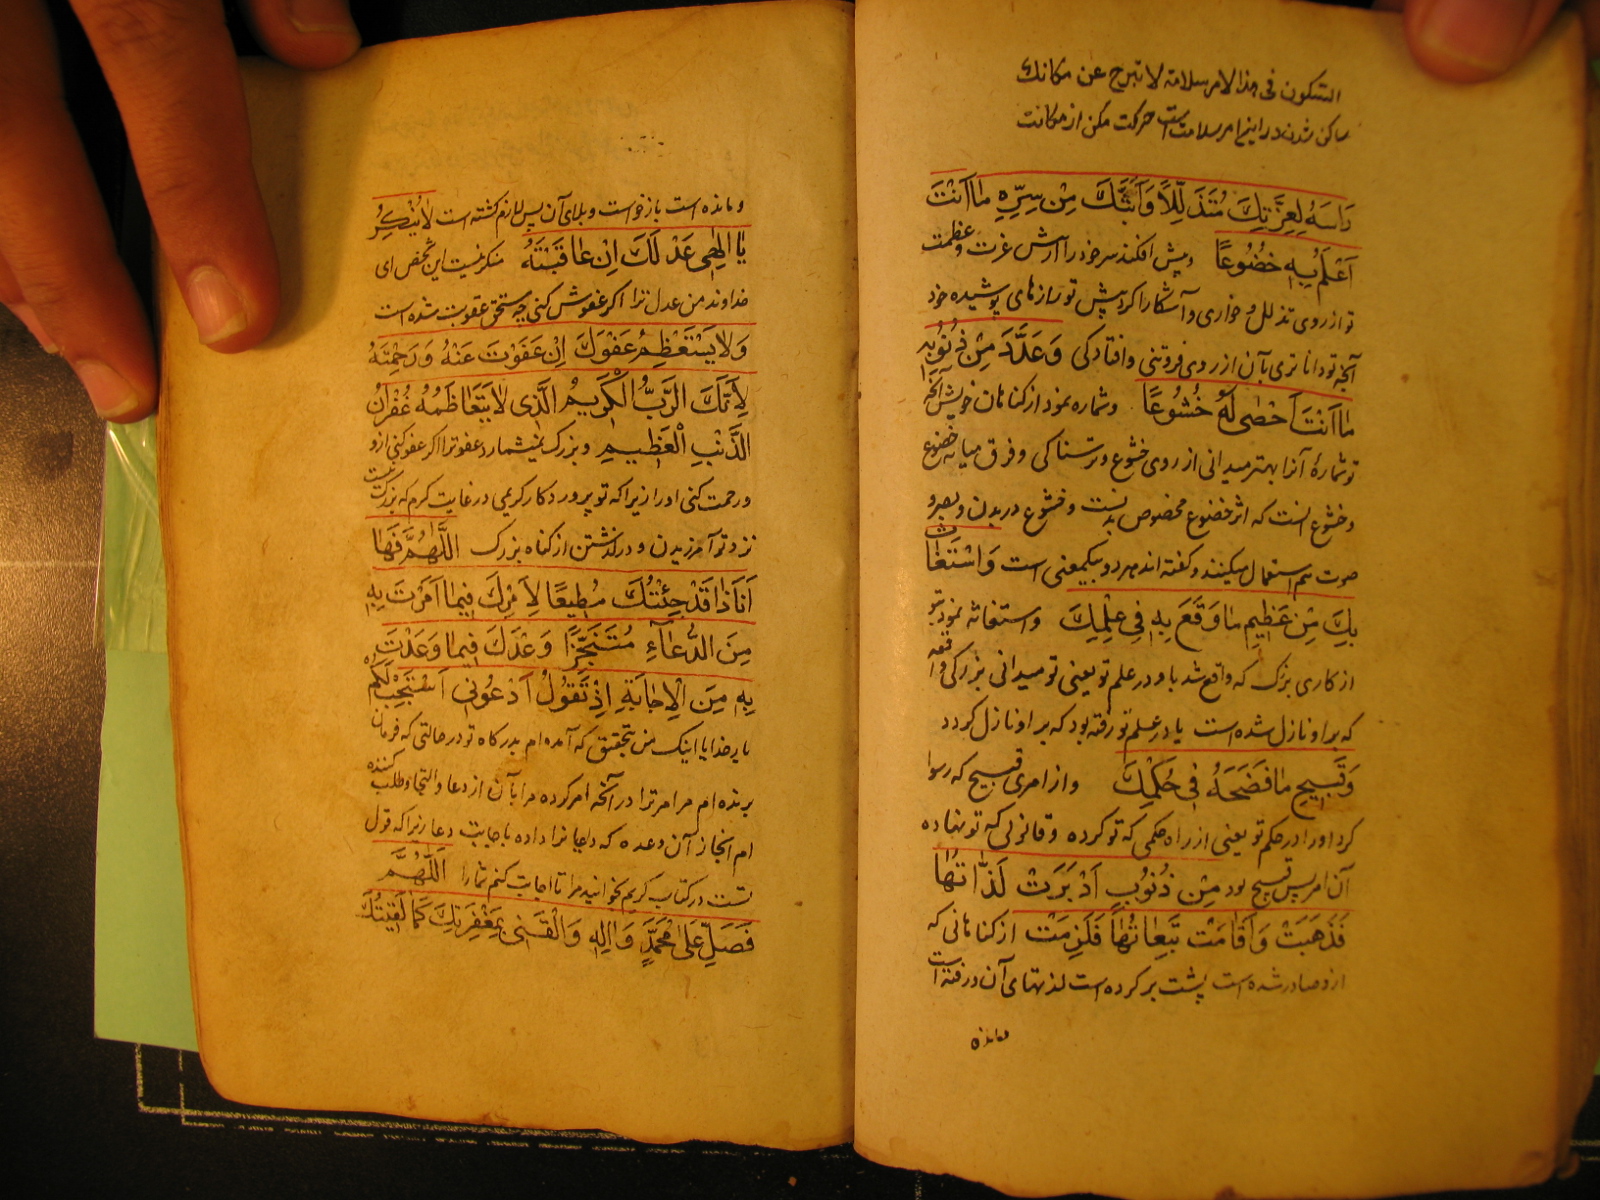 السكون فی هذا الامر سلامة لا تبرح عن مكانك
ساکن شدن در اینجا امر سلامت است حرکت مکن از مکانت
رَاسَهُ لِعِزَّتِكَ مُتَذَلِّلاً وَاَبَثَّكَ مِنْ سِرِّهِ مٰا اَنْتَ
اَعْلَمُ بِهِ خُضُوعًا و پیش افکند سر خود را از عزت و عظمت
تو از روی تذلل و خواری و آشکارا کرد پیش تو رازهای پوشیده خود
آنچه تو داناتری بآن از روی فروتنی و افتادگی وَعَدَّدَ مِنْ ذُنُوبِهِ
مٰا اَنْتَ اَحْصٰى لَهُ خُشُوعًا و شماره نمود از کناهان خویش آنچه
تو شمارهٔ آنرا بهتر میدانی از روی خشوع و ترسناکی و فرق میانه خضوع
و خشوع انست که اثر خضوع مخصوص بدنست و خشوع در بدن و بصر و
صوت هم استعمال میکنند و گفته اند هر دو بیکمعنی است وَاسْتَغٰاثَ
بِكَ مِنْ عَظِيمِ مٰا وَقَعَ بِهِ فِي عِلْمِكَ و استغاثه نمود بتو
از کاری بزرک که واقع شد باو در علم تو یعنی تو میدانی بزرکی واقعه
که بر او نازل شده است یا در علم تو رفته بود که بر او نازل کردد
وَقَبِيحِ مٰا فَضَحَهُ فِي حُكْمِكَ و از امری قبیح که رسوا
کرد او را در حکم تو یعنی از راه حکمی که تو کرده و قانونی که تو نهاده
آن امر بس قبیح بود مِنْ ذُنُوبٍ اَدْبَرَتْ لَذّٰاتُهٰا
فَذَهَبَتْ وَاَقٰامَتْ تَبِعٰاتُهٰا فَلَزِمَتْ از کناهانی که
از و صادر شده است پشت بر کرده است لذتهای آن و رفته است
ومانده
و مانده است بازخواست و بلای آن پس لازم کشته است لاٰ يُنْكِرُ
يٰا اِلٰهِي عَدْلَكَ اِنْ عٰاقَبْتَهُ منکر نیست این شخص ای
خداوند من عدل ترا اکر عقوبتش کنی چه مستحق عقوبت شده است
وَلاٰ يَسْتَعْظِمُ عَفْوَكَ اِنْ عَفَوْتَ عَنْهُ وَرَحِمْتَهُ
لِاَنَّكَ الرَّبُّ الْكَرِيمُ الَّذِي لاٰ يَتَعٰاظَمُهُ غُفْرٰانُ
الذَّنْبِ الْعَظِيمِ و بزرک نمیشمارد عفو ترا اکر عفو کنی از و
و رحمت کنی او را زیرا که تو پروردکار کریمی در غایت کرم که بزرک نیست
نزد تو آمرزیدن و درکذشتن از کناه بزرک اَللّٰهُمَّ فَهٰا
اَنَا ذٰا قَدْ جِئْتُكَ مُطِيعًا لِاَمْرِكَ فِيمٰا اَمَرْتَ بِهِ
مِنَ الدُّعٰاۤءِ مُتَنَجِّزًا وَعْدَكَ فِيمٰا وَعَدْتَ
بِهِ مِنَ الْاِجٰابَةِ اِذْ تَقُولُ اُدْعُونِي اَسْتَجِبْ لَكُمْ
بار خدایا اینک من بتحقیق که آمده ام بدرکاه تو در حالتی که فرمان
برنده ام مر امر ترا در آنچه امر کرده مرا بآن از دعا و التجا و طلب کننده
ام انجاز آن وعده که داده باجابت دعا زیرا که قول
تست در کتاب کریم بخوانید مرا تا اجابت کنم شما را اَللّٰهُمَّ
فَصَلِّ عَلىٰ مُحَمَّدٍ وَاٰلِهِ وَالْقَنِي بِمَغْفِرَتِكَ كَمٰا لَقِيتُكَ